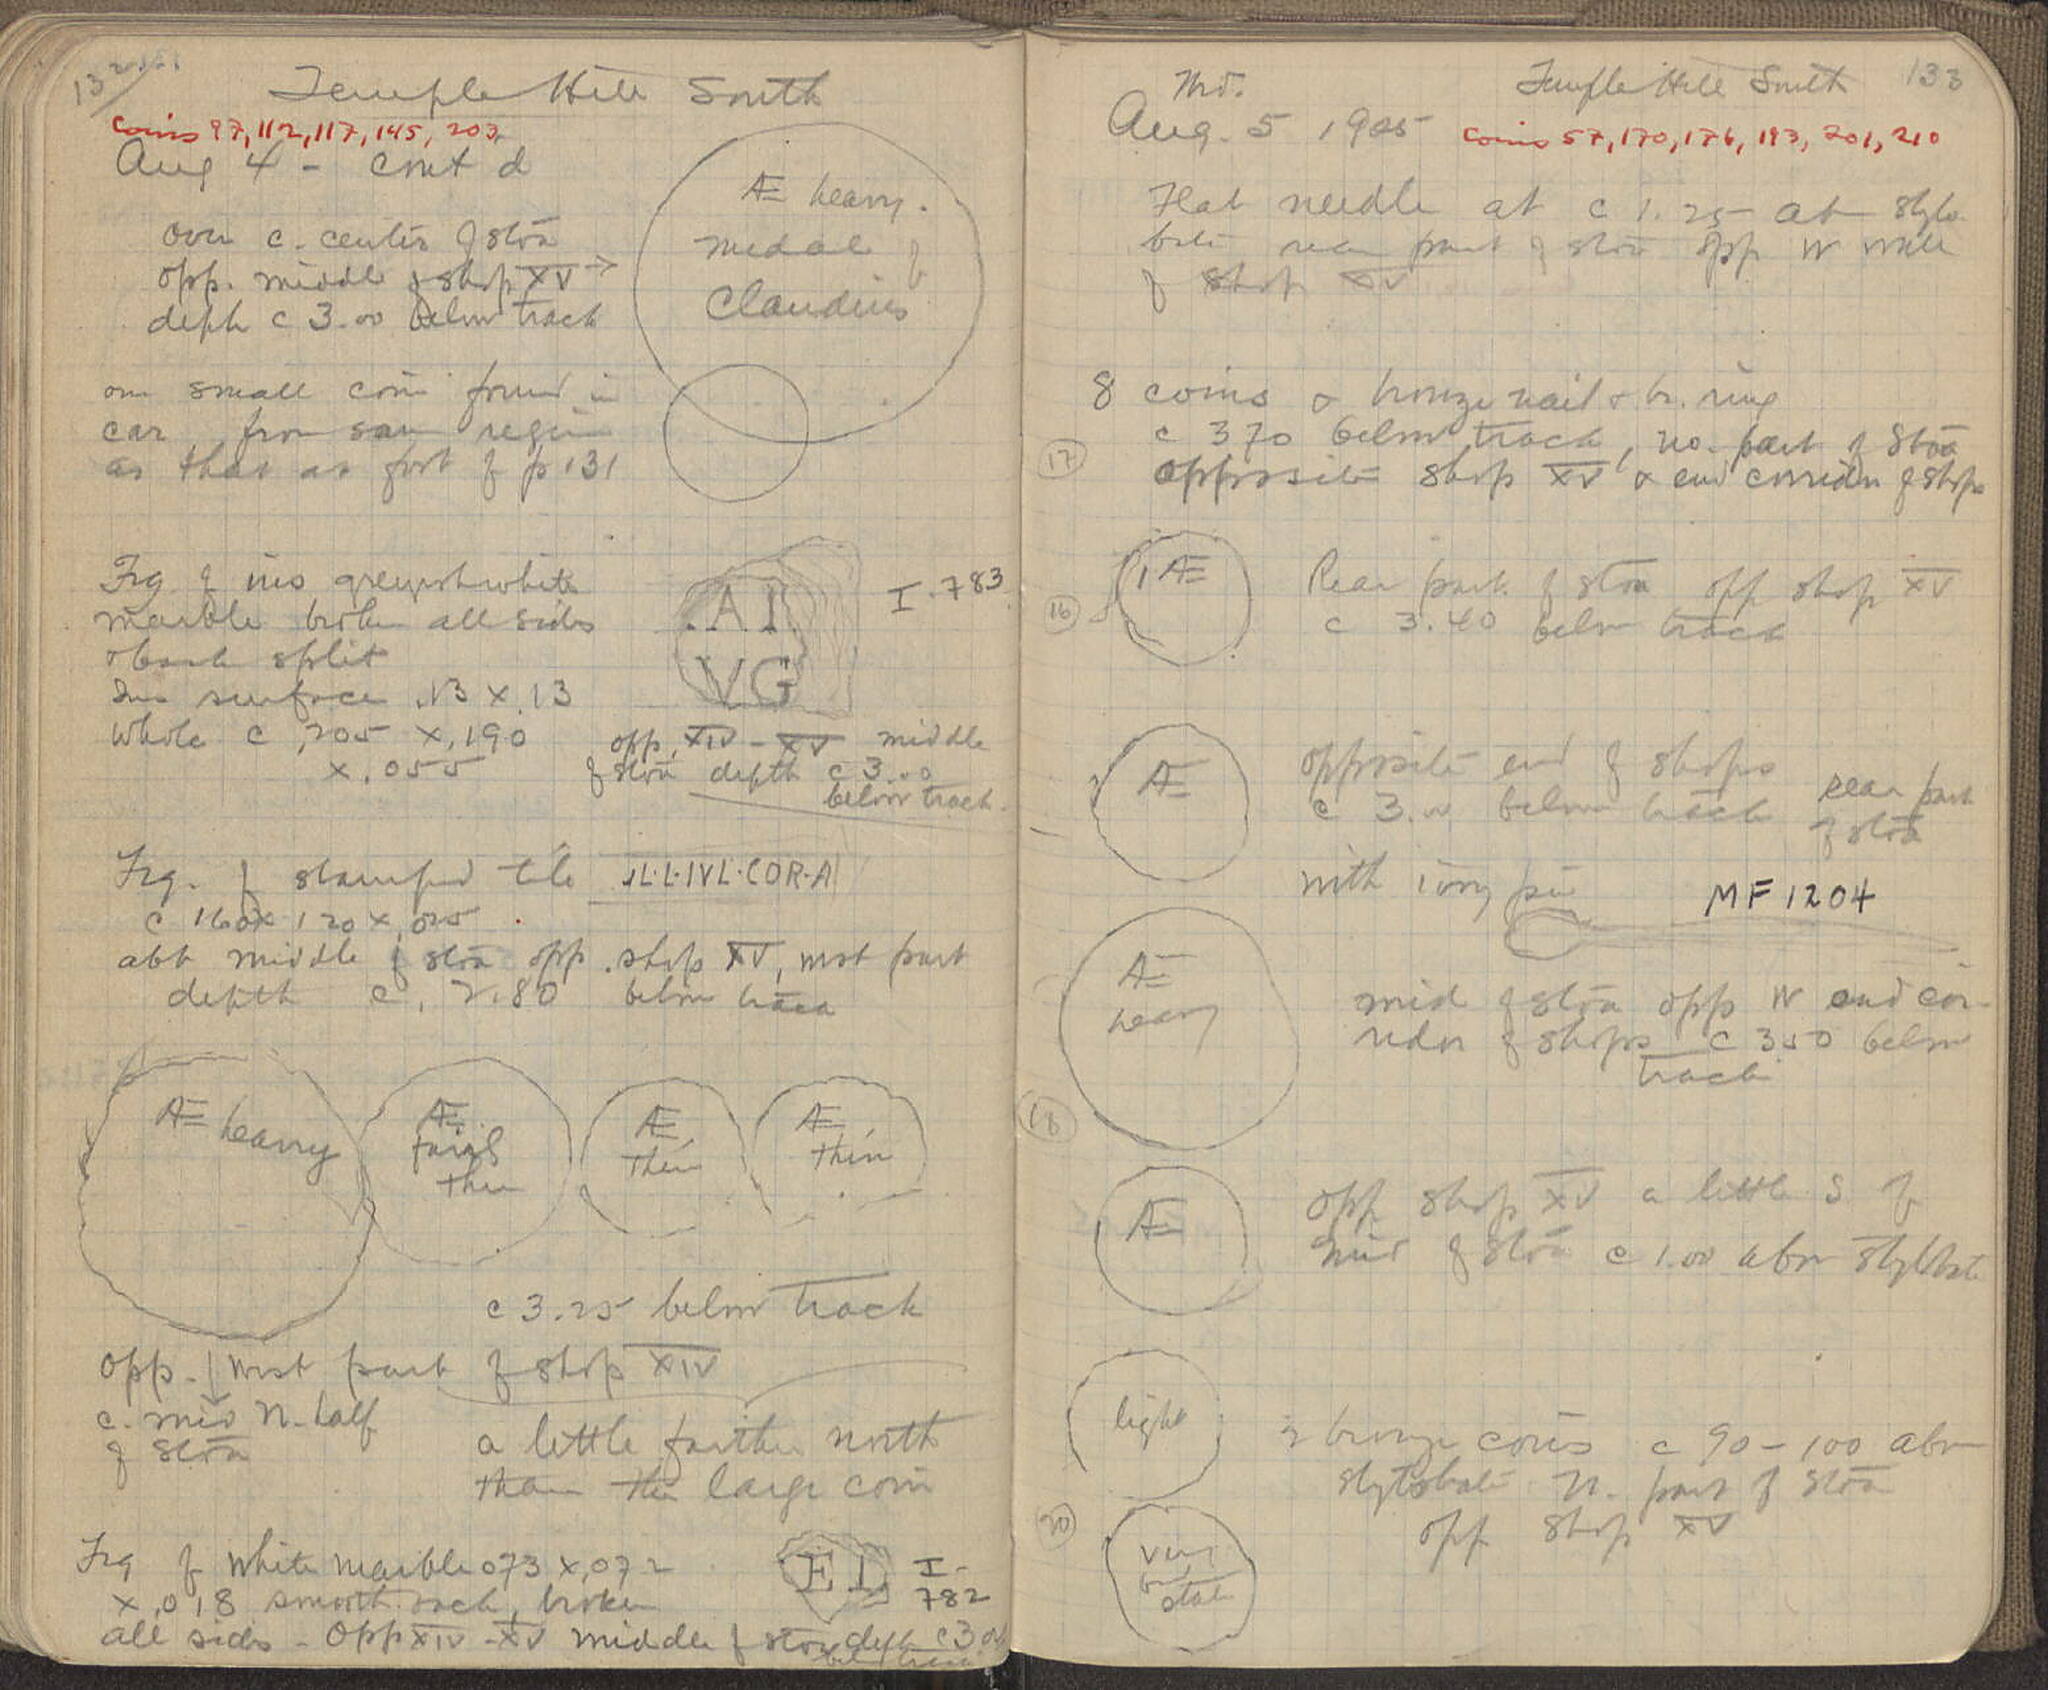 132
Temple Hill South
Coins 97, 112, 117, 145, 203
Aug 4 - cont'd
over c. center of stoa
opp. middle of shop XV →
depth c 3.00 below track
Æ heavy.
medal of
Claudius
one small coin found in
car from same region
as that at foot of p 131
Frg of ins greyish white
marble broken all sides
& back split
Ins surface .13 x .13
Whole c .205 x .190
x .055
.AI
VG
I-783
opp. XIV - XV middle
of stoa depth c 3.00
below track
Frg. of stamped tile L·L·IVL·COR·A
c 160 x 120 x .025
abt middle of stoa opp. shop XV, west part
depth c. 2.80 below track
Æ heavy
Æ fairly thin
Æ thin
Æ thin
c 3.25 below track
opp. west part of shop XIV
c. mid N. half
of stoa
a little farther north
than the large coin
Frg of white marble .073 x .072
x .018 smooth back, broken
all sides - Opp XIV - XV middle of stoa depth c 3.00
below track
EI
I-
782
133
Temple Hill South
Aug. 5 1905
Coins 57, 170, 176, 193, 201, 210
Flat needle at c 1.25 ab stylo
bate rear part of stoa opp W wall
of shop XV
8 coins & bronze nail & br. ring
c 3.70 below track, no. part of stoa
17
opposite shop XV & end corridor of shops
16
Æ
Rear part of stoa opp shop XV
c 3.40 below track
Æ
opposite end of shops
c 3.00 below track
rear part
of stoa
with ivory pin
MF 1204
Æ
heavy
mid of stoa opp W end cor-
ridor of shops c 3.50 below
track
18
Æ
opp shop XV a little S of
mid of stoa c 1.00 above stylobate
light
2 bronze coins c 90 - 100 above
stylobate N. part of stoa
opp shop XV
20
very
bad
state